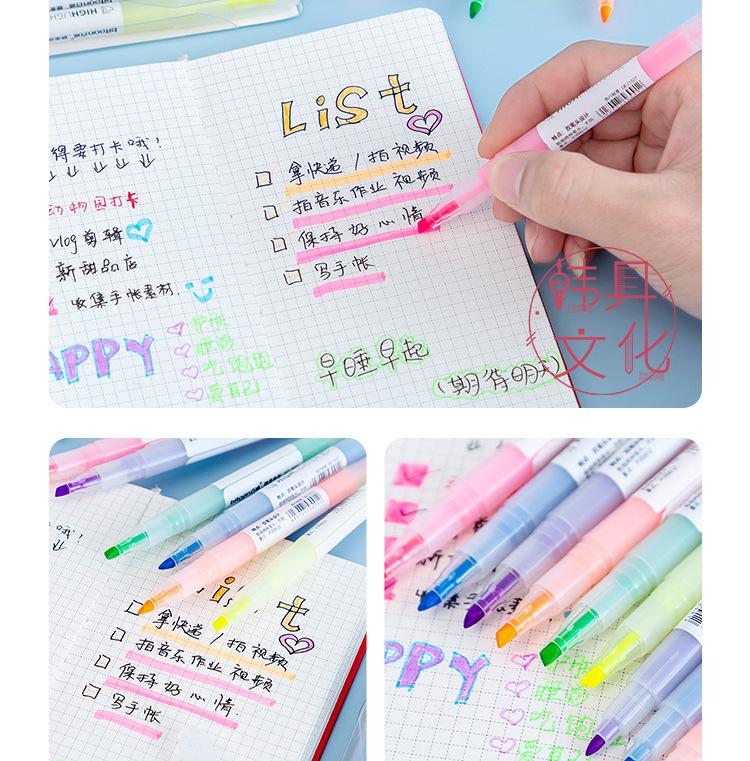 bitoon
HIGH
LiSt
得要打卡哦!
拿快递 / 拍视频
动物园打卡
拍音乐作业视频
vlog剪辑
保持好心情
新甜品店
写手帐
收集手帐素材.
APPY
吃饱饱
爱自己
早睡早起
(期待明天
韩耳
文化
特点: 双笔头设计
List
拿快递 / 拍视频
拍音乐作业视频
保持好心情.
写手帐
PPY
吃饱
爱自己